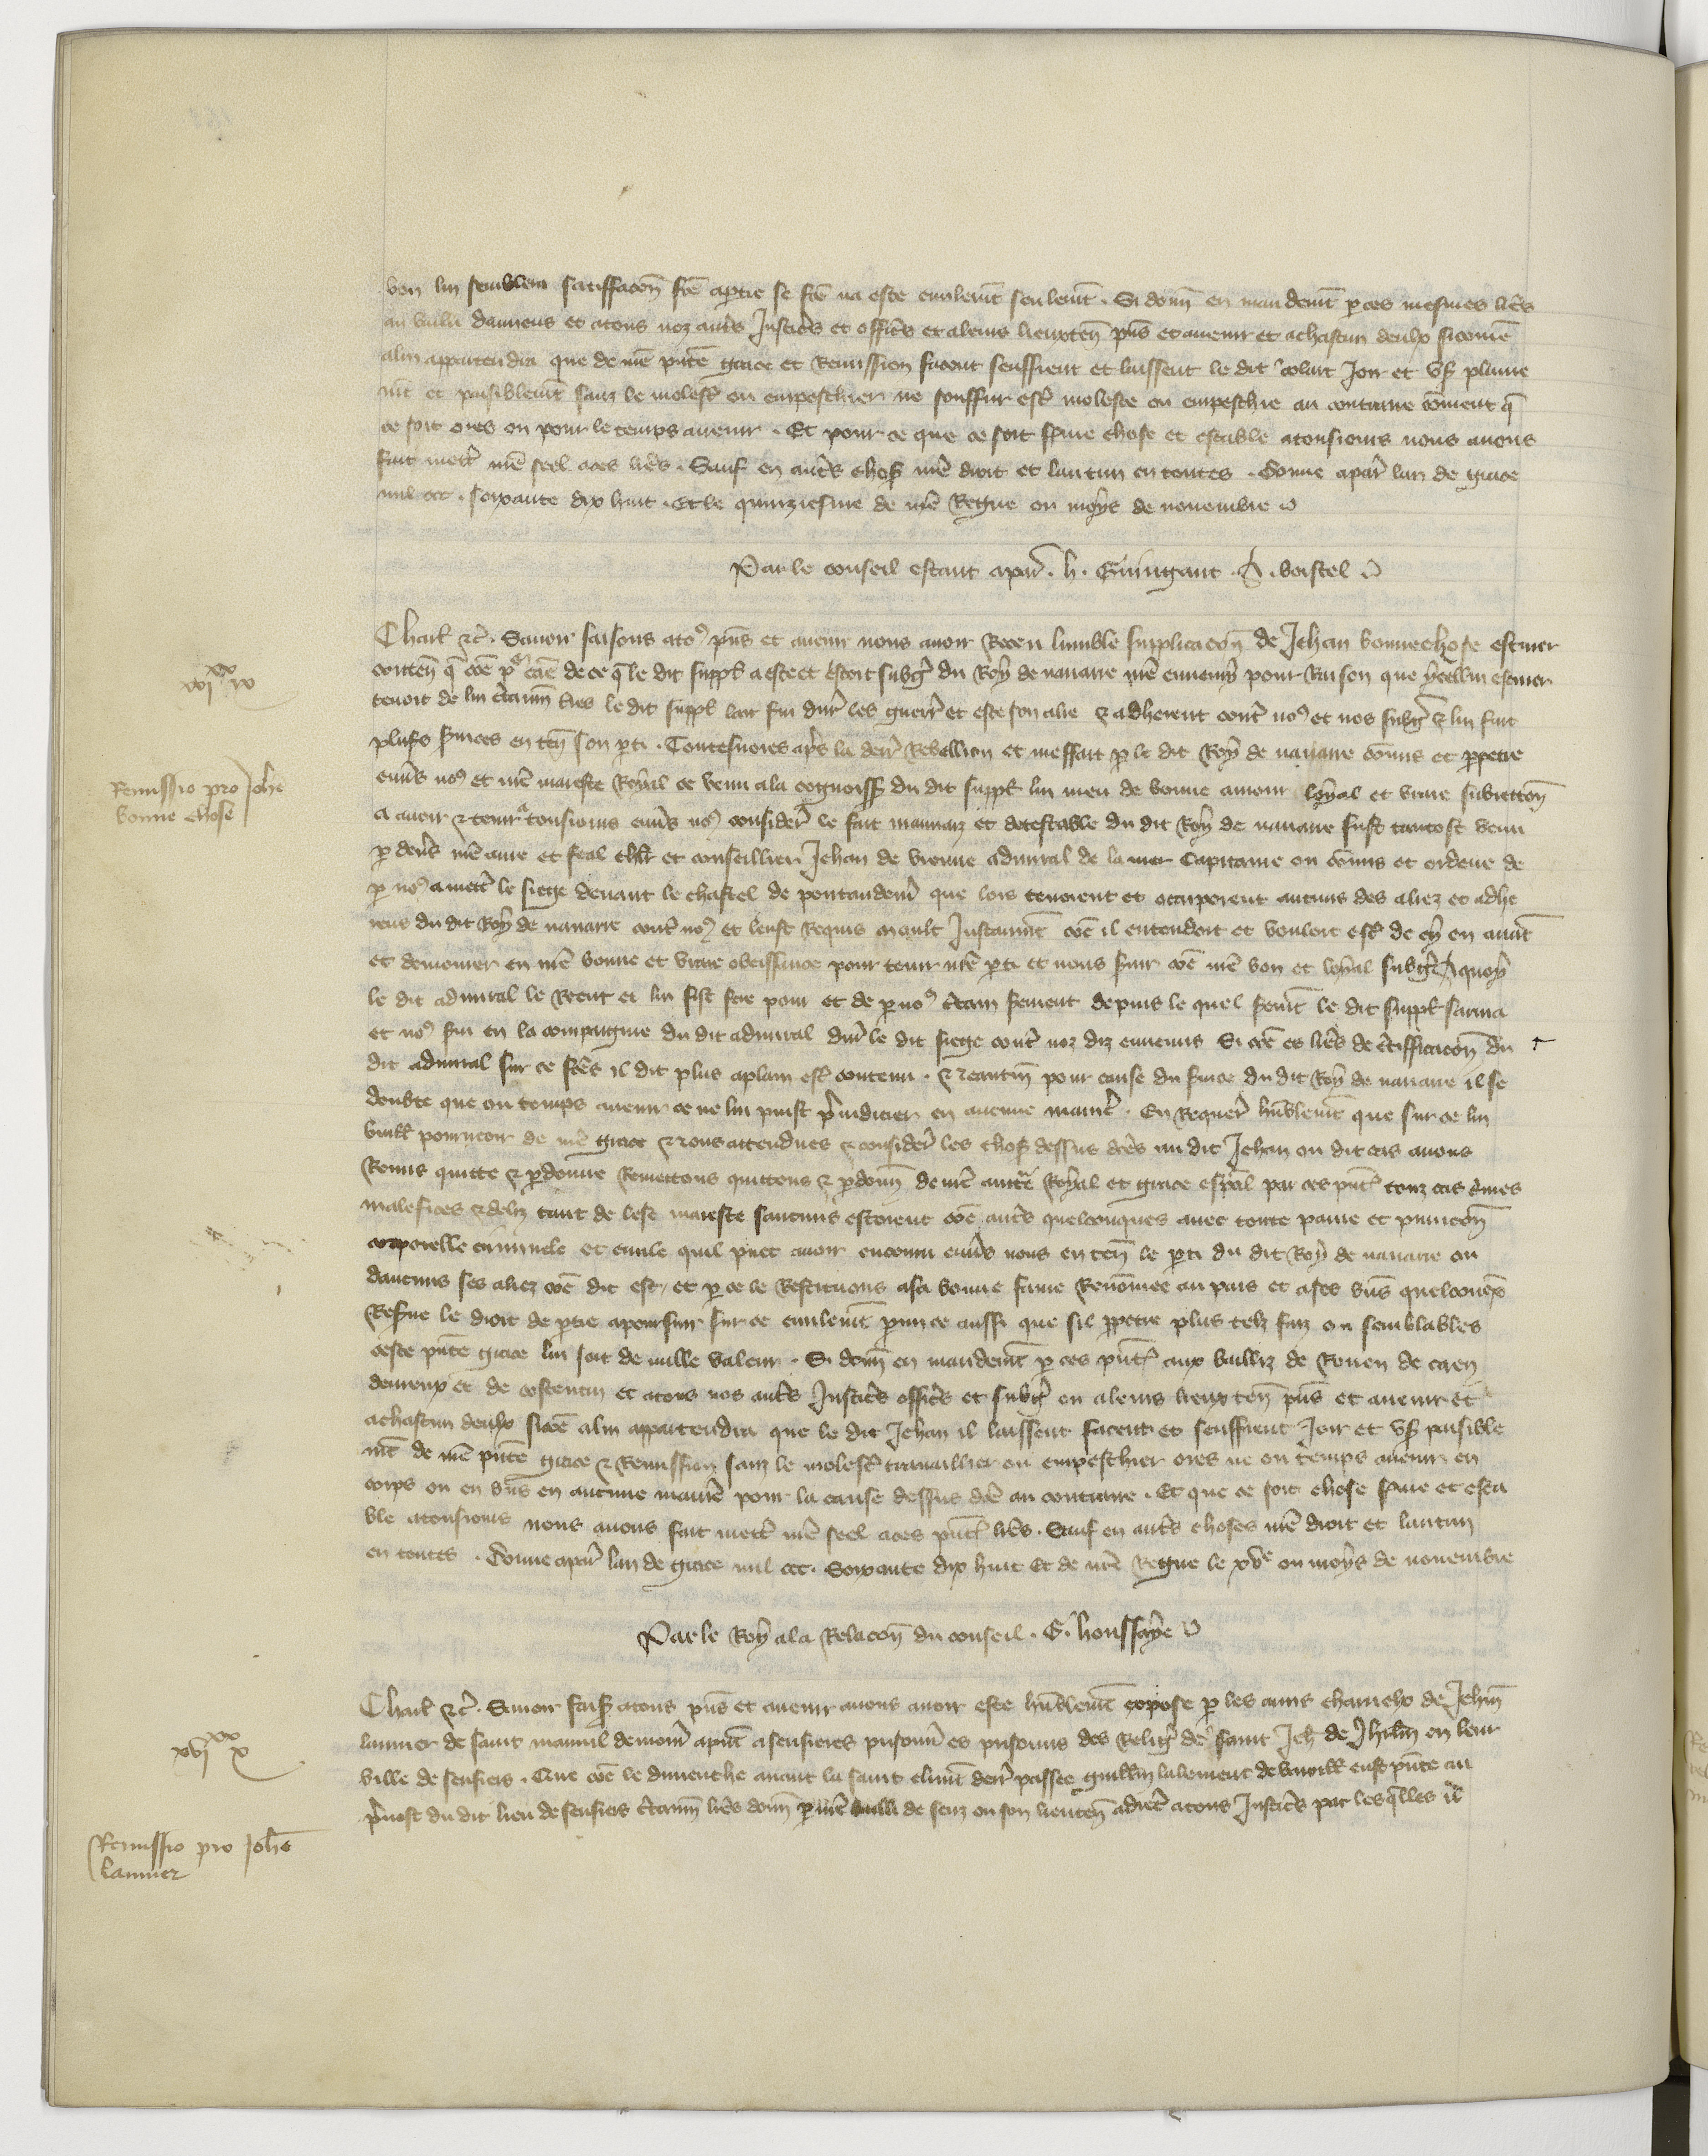 bon lui semblera satisfacōn fcē a ptie se fcē na este civilemēt seulemēt . Si donn̄ en mandemēt p ces mesmes lrēs
au bailli damiens et a tous noz autrēs Justicrēs et officrēs et a leurs lieuxten̄ pn̄s et avenir et a chascun deulx si comē
a lui appartendra que de nrē pn̄te grace et Remission facent seuffrent et laissent le dit Colart Joir et us̄ plaine
mēt et paisiblemēt sanz le molest̄ ou empeschier ne souffrir estrē moleste ou empeschie au contraire cōment q̄
ce soit ores ou pour le temps avenir . Et pour ce que ce soit ferme chose et estable a tousiours nous avons
fait mettrē nrē seel a ces lrēs . Sauf en autrēs choses nrē droit et lautrui en toutes . Donne a par̄ lan de grace
mil ccc . soixante dix huit . Et le quinziesme de nrē Regne ou moys de novembre

Par le conseil estant a par̄ . h . Guingant . J . boistel

Charl̄ &c̄ . Savoir faisons a to9 pn̄s et avenir nous avoir Receu lumble supplicacōn de Jehan bonnechose escuier
conten̄ q̄ cōe p cāe de ce q̄ le dit suppl̄ a este et estoit subgt̄ du Roy de navarre nrē ennemy pour Raison que ycellui escuier
tenoit de lui c̄tainn̄ t̄res le dit suppl̄ lait fui dur̄ les guerr̄ et este son alie & adherent contrē no9 et nos subgt̄ & lui fait
plus s̄vices en ten̄ son pti . Toutesvoies ap̄s la derr̄ Rebellion et meffait p le dit Roy de navarre cōmis et ppetre
env̄s no9 et nrē maieste Royal ce venu a la cognoiss̄ du dit suppl̄ lui meu de bonne amour loyal et vraie subiectōn
a avoir & tenir a tousiours env̄s no9 consider̄ le fait mauvaiz et detestable du dit Roy de navarre fust tantost venu
p dev̄s nrē ame et feal chlr̄ et conseillier Jehan de vienne admiral de la mer Capitaine ou cōmis et ordene de
p no9 a mettrē le siege devant le chastel de pontaudem̄ que lors tenoient et occupoient aucuns des aliez et adhe
rens du dit Roy de navarre contrē no9 et leust Requis moult Instanmēt cōe il entendoit et vouloit estrē de cy en avāt
et demourer en nrē bonne et vraie obeissance pour tenir nrē pti et nous s̄vir cōe nrē bon et loyal subgt̄ A quoy
le dit admiral le Receut et lui fist fcē pour et de p no9 c̄tain s̄ement depuis le quel s̄emēt le dit suppl̄ sarma
et no9 s̄vi en la compaignie du dit admiral dur̄ le dit siege contrē noz diz ennemis Si cōe es lrēs de c̄tifficacōn du
dit admiral sur ce fcēs il dit plus a plain estrē contenu . & neantm̄ pour cause du s̄vice du dit Roy de navarre il se
doubte que ou temps avenir ce ne lui puist p̄iudicier en aucune manier̄ . En Requer̄ hūblemēt que sur ce lui
vueill̄ pourveoir de nrē grace & nous attendues & consider̄ les choses dessus dcēs au dit Jehan ou dit cas avons
Remis quitte & pdonne Remettons quittons & pdonn̄ de nrē auctē Royal et grace espāl par ces pn̄t̄ touz cas c̄mes
malefices & deliz tant de lese maieste saucuns estoient cōe autrēs quelconques avec toute paine et punicōn
corporelle criminele et civile quil puet avoir encouru env̄s nous en ten̄ le pti du dit Roy de navarre ou
daucuns ses aliez cōe dit est / et p ce le Restituons a sa bonne fame Renōmee au pais et a ses biēs quelconēx̄
Res̄ve le droit de ptie a poursuir sur ce civilemēt pmi ce aussi que sil ppetre plus telz faiz ou semblables
ceste pn̄te grace lui soit de nulle valeur . Si donn̄ en mandemēt p ces pn̄t̄ aux bailliz de Rouen de caen
devreux et de costentin et a tous nos autrēs Justicrēs officrēs et subgt̄ ou a leurs lieuxten̄ pn̄s et avenir et
a chascun deulx si cōe a lui appartendra que le dit Jehan il laissent facent et seuffrent Joir et us̄ paisible
mēt de nrē pn̄te grace & Remission sanz le molest̄ travaillier ou empeschier ores ne ou temps avenir en
corps ou en biēs en aucune manier̄ pour la cause dessus dcē au contraire . Et que ce soit chose ferme et esta
ble a tousiours nous avons fait mettrē nrē seel a ces pn̄t̄ lrēs . Sauf en autrēs choses nrē droit et lautrui
en toutes . Donne a par̄ lan de grace mil ccc . Soixante dix huit Et de nrē Regne le xve ou moys de novembre

Par le Roy a la Relacōn du conseil . G . houssaye

Charl̄ &c̄ . Savoir fais̄ a tous pn̄s et avenir a nous avoir este hūblemēt expose p les amis charnelx de Jehan̄
lannier de saint mamil demour̄ a pn̄t a senseres prisonn̄ es prisons des Religx̄ de saint Jeh̄ de Jhrl̄m en leur
ville de senseres . Que cōe le dimenche avant la saint climēt derr̄ passee guill̄m lalemant de vermeill̄ eust pn̄te au
p̄vost du dit lieu de senseres c̄tainn̄ lrēs donn̄ p nrē bailli de senz ou son lieuten̄ adrec̄ a tous Justicrēs par lesq̄lles il

xvi xx ix
Remissio pro Johē
bonne chose
xvi xx x
Remissio pro Johē
Lannier